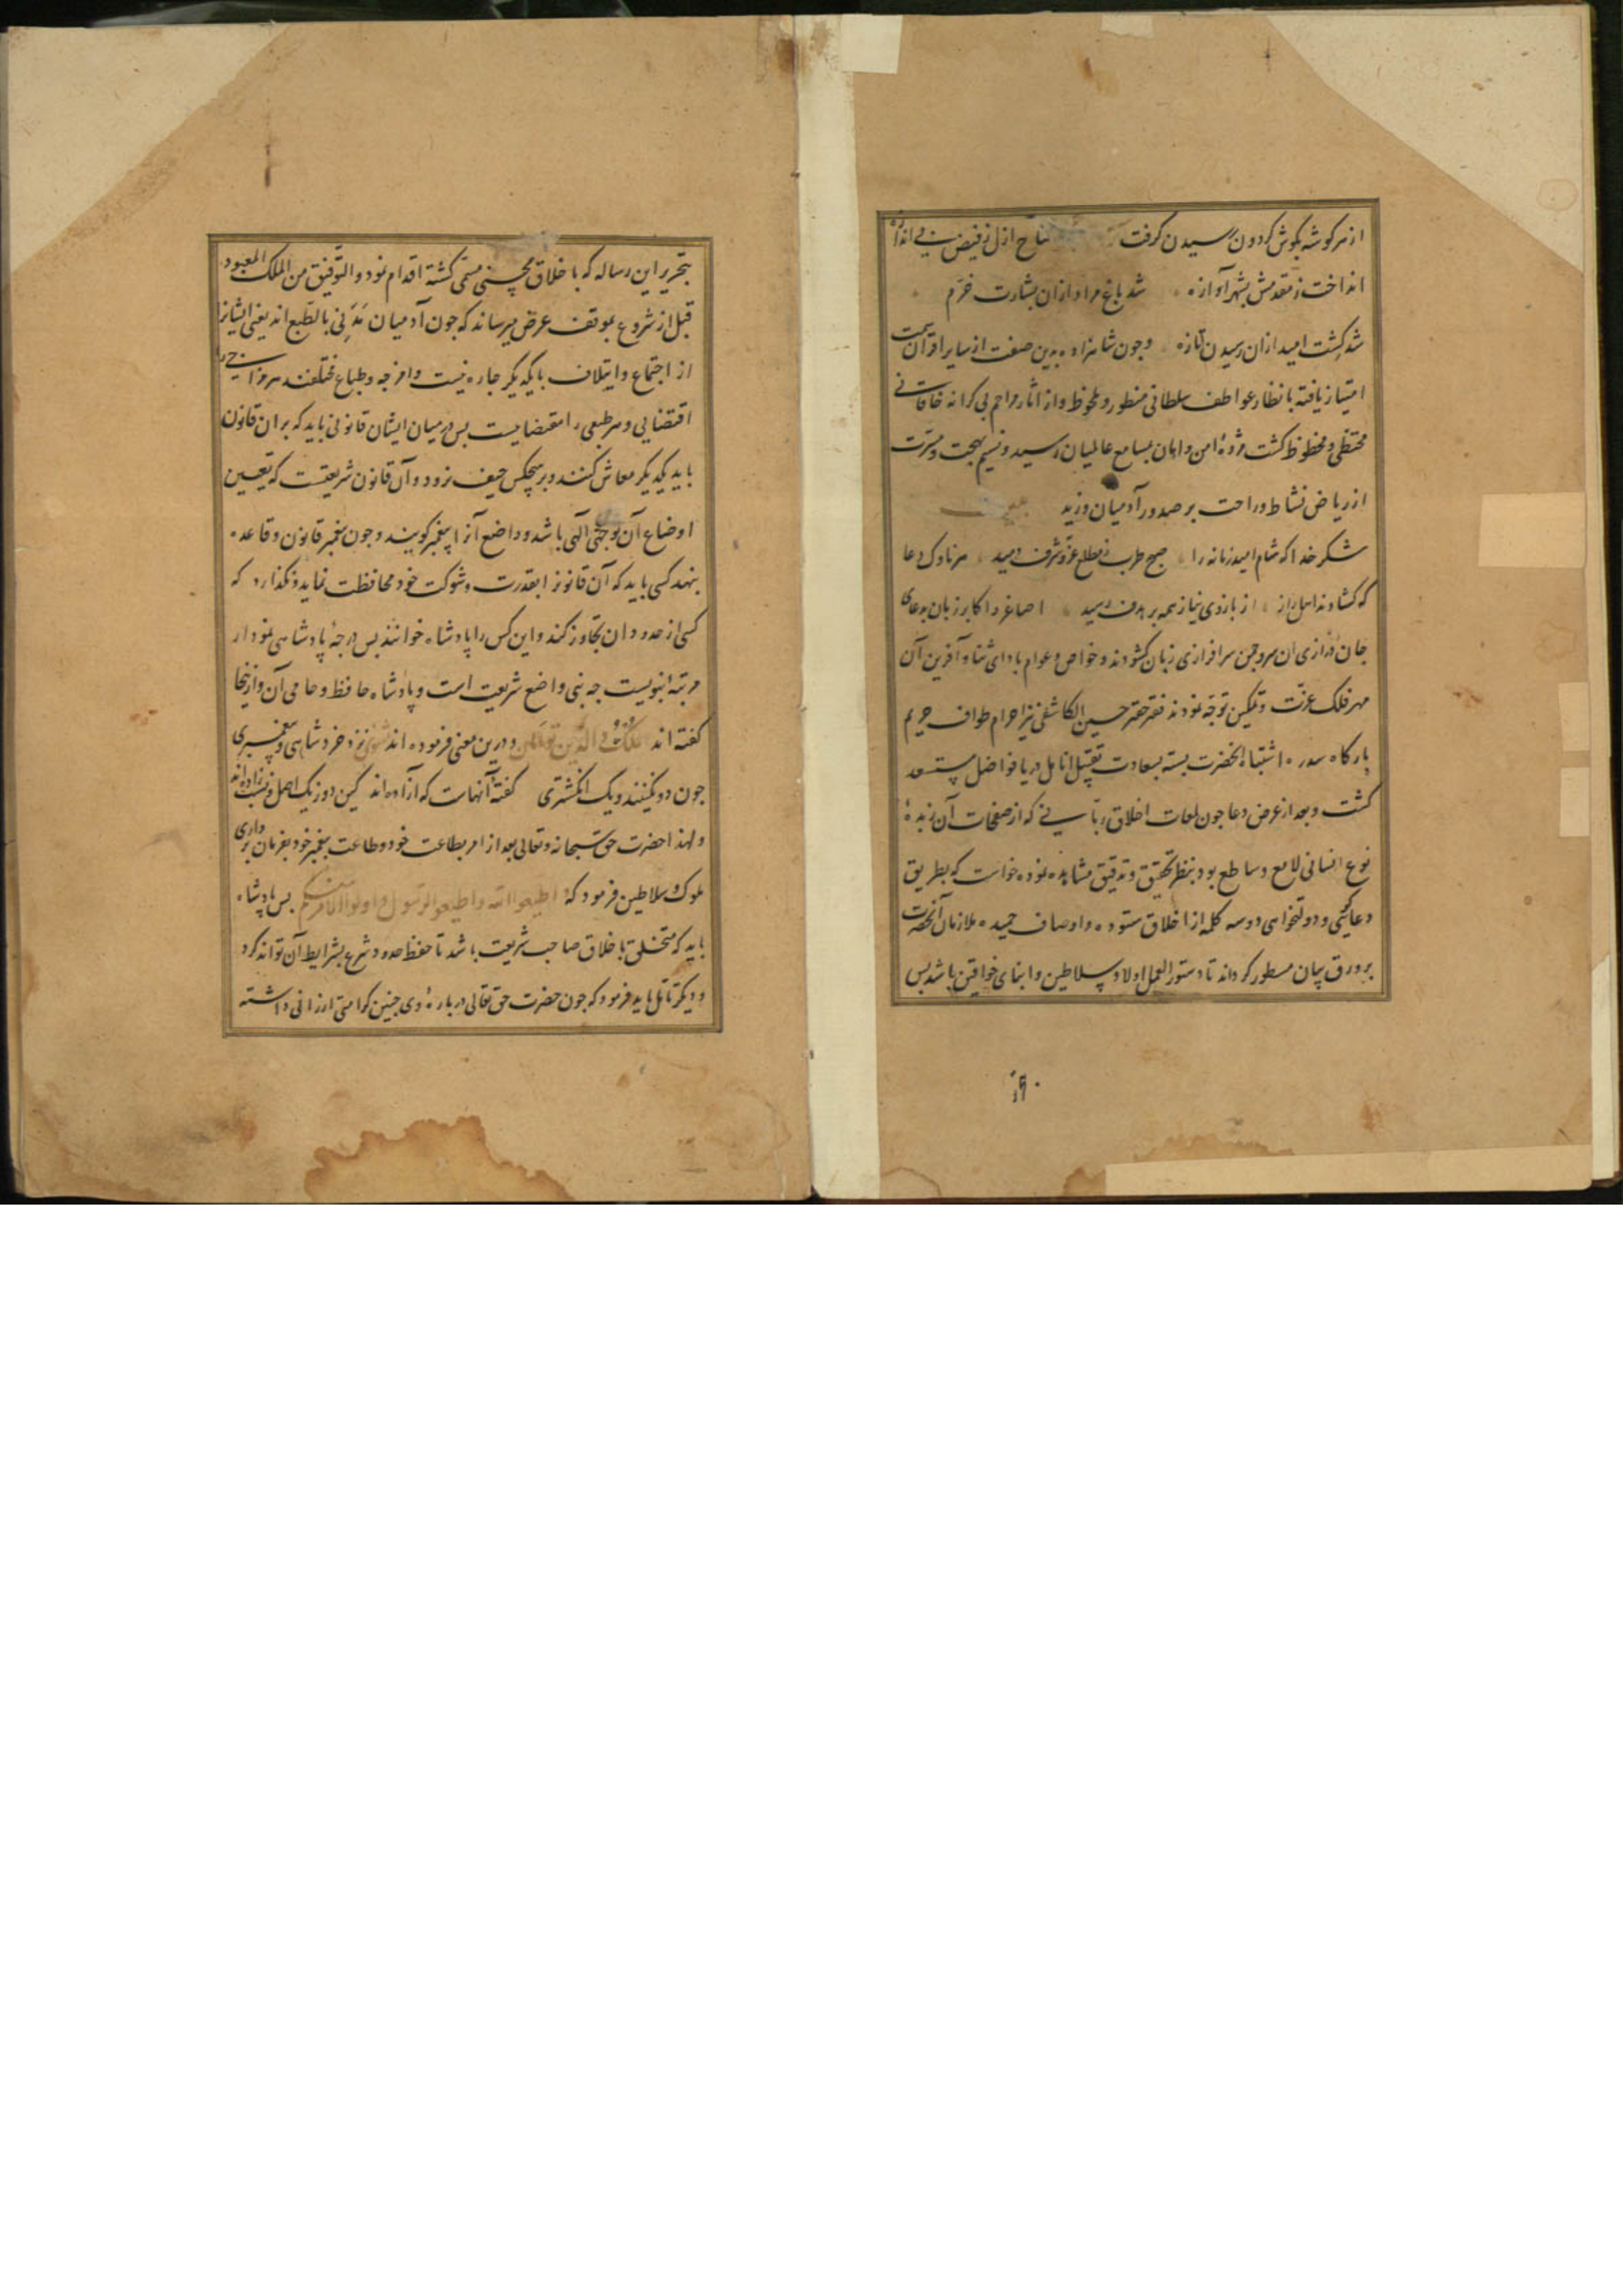 از هر کوشه بکوش کردون رسیدن کرفت فتاح ازل ز فیض بی اندازه
انداخت ز مقدمش بشهر آوازه شد باغ مراد ازان بشارت خرم
شد کشت امید ازان رسیدن تازه وجون شاهزاده بدین صفت از سایر اقران سمت
امتیاز یافته بانظار عواطف سلطانی منظور و ملحوظ و از آثار مراحم بی کرانه خاقانی
محتظی و محظوظ کشت مژدهٔ امن و امان بمسامع عالمیان رسید و نسیم بهجت و مسرت
از ریاض نشاط و راحت بر صدور آدمیان وزید
شکر خدا که شام امید زمانه را صبح طرب ز مطلع عز و شرف دمید هر ناوک دعا
که کشادند اهل راز از بازوی نیاز همه بر هدف رسید اصاغر و اکابر زبان بدعای
جان درازی ان سرو جمن سرافرازی زبان کشودند و خواص و عوام بادای ثنا و آفرین آن
مهر فلک عزت و تمکین توجه نمودند فقیر حقیر حسین الکاشفی نیز احرام طواف حریم
بارکاه سدره اشتباه انحضرت بسته بسعادت تقبیل انامل دریا فواضل مستسعد
کشت و بعد از عرض دعا جون لمعات اخلاق ربانی که از صفحات آن زبدهٔ
نوع انسانی لامع و ساطع بود بنظر تحقیق و تدقیق مشاهده نمود خواست که بطریق
دعاکویی و دولتخواهی دو سه کلمه از اخلاق ستوده و اوصاف حمیده ملازمان آنحضرت
بر ورق بیان مسطور کرداند تا دستور العمل اولاد سلاطین و ابنای خواقین باشد بس
۹۰
بتحریر این رساله که باخلاق محسنی مسمی کشته اقدام نمود و التوفیق من الملک المعبود
قبل از شروع بموقف عرض میرساند که جون آدمیان مدنی بالطبع اند یعنی ایشانرا
از اجتماع و ایتلاف با یکدیکر جاره نیست و امزجه و طباع مختلفند هر مزاجی را
اقتضایی و هر طبعی را مقتضاییست بس در میان ایشان قانونی باید که بران قانون
با یکدیکر معاش کنند و بر هیجکس حیف نرود و آن قانون شریعتست که تعیین
اوضاع آن بوحی الهی باشد و واضع آنرا پیغمبر کویند و جون پیغمبر قانون و قاعده
بنهد کسی باید که آن قانونرا بقدرت و شوکت خود محافظت نماید و نکذارد که
کسی از حدود ان تجاوز کند و این کس را پادشاه خوانند بس درجهٔ پادشاهی نمودار
مرتبهٔ نبویست جه نبی واضع شریعت است و پادشاه حافظ و حامی آن و ازینجا
کفته اند الملک و الدین توامان و درین معنی فرموده اند مثنوی نزد خرد شاهی و پیغمبری
جون دو نکینند و یک انکشتری کفتهٔ آنهاست که آزاده اند کین دو ز یک اصل و نسب زاده اند
و لهذا حضرت حق سبحانه و تعالی بعد از امر بطاعت خود و طاعت پیغمبر خود بفرمان برداری
ملوک و سلاطین فرمود که اطیعوا الله و اطیعوا الرسول و اولوا الامر منکم بس پادشاه
باید که متخلق باخلاق صاحب شریعت باشد تا حفظ حدود شرع بشرایط آن تواند کرد
و دیکر تامل باید فرمود که جون حضرت حق تعالی در بارهٔ وی جنین کرامتی ارزانی داشته